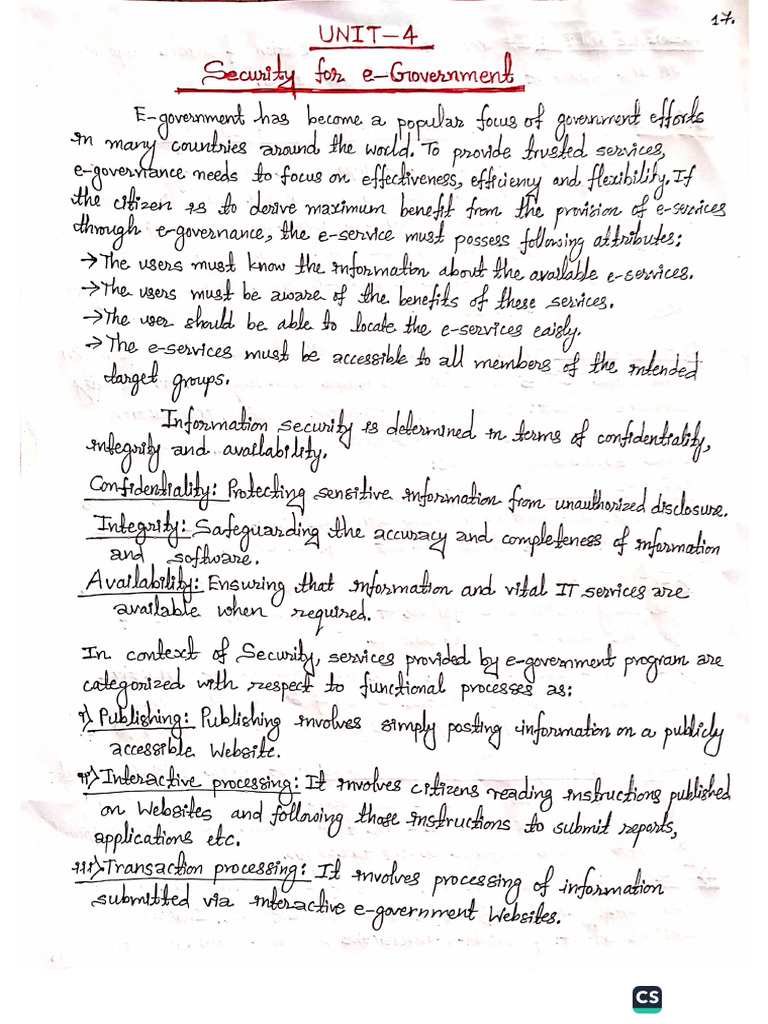 17.
UNIT-4
Security for e-Government
E-government has become a popular focus of government efforts
in many countries around the world. To provide trusted services,
e-governance needs to focus on effectiveness, efficiency and flexibility. If
the citizen is to derive maximum benefit from the provision of e-services
through e-governance, the e-service must possess following attributes:
→The users must know the information about the available e-services.
→The users must be aware of the benefits of these services.
→The user should be able to locate the e-services eaisly.
→The e-services must be accessible to all members of the intended
target groups.
Information security is determined in terms of confidentiality,
integrity and availability.
Confidentiality: Protecting sensitive information from unauthorized disclosure.
Integrity: Safeguarding the accuracy and completeness of information
and software.
Availability: Ensuring that information and vital IT services are
available when required.
In context of Security, services provided by e-government program are
categorized with respect to functional processes as:
i) Publishing: Publishing involves simply posting information on a publicly
accessible Website.
ii) Interactive processing: It involves citizens reading instructions published
on Websites and following those instructions to submit reports,
applications etc.
iii) Transaction processing: It involves processing of information
submitted via interactive e-government Websites.
CS